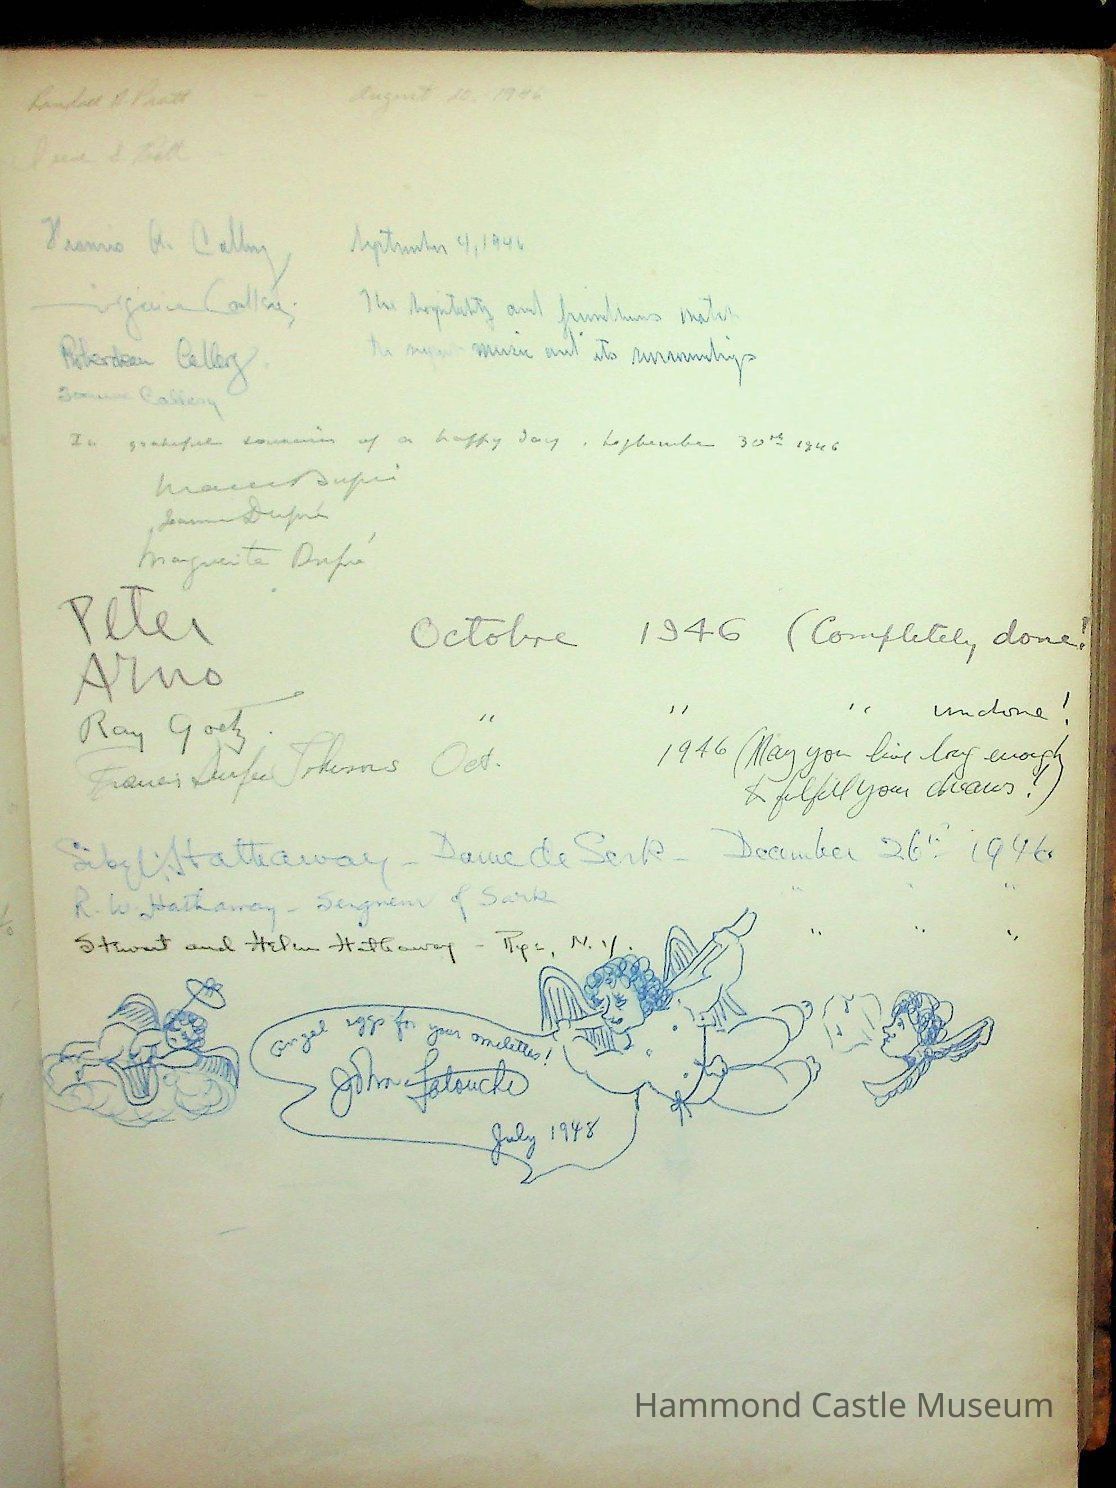 Randall A Pratt - August 20, 1946
September 4, 1946
Virginia Callery The hospitality and friendliness match
Roberdeau Callery the music and its surroundings
Callery
In grateful souvenir of a happy day. September 30th 1946
Marcel Dupré
Jeanne Dupré
Marguerite Dupré
Peter
Arno Octobre 1946 (Completely done!
Ray Goetz. " " " undone!
Francis Johnson Oct. 1946 (May you live long enough
to fulfill your dreams!)
Sibyl Hathaway - Dame de Serk - December 26th 1946.
R. W. Hathaway - Seigneur of Sark " " "
Stewart and Helen Hathaway - Rye, N.Y. " " "
angel eggs for your omelettes!
John Latouche
July 1948
Hammond Castle Museum